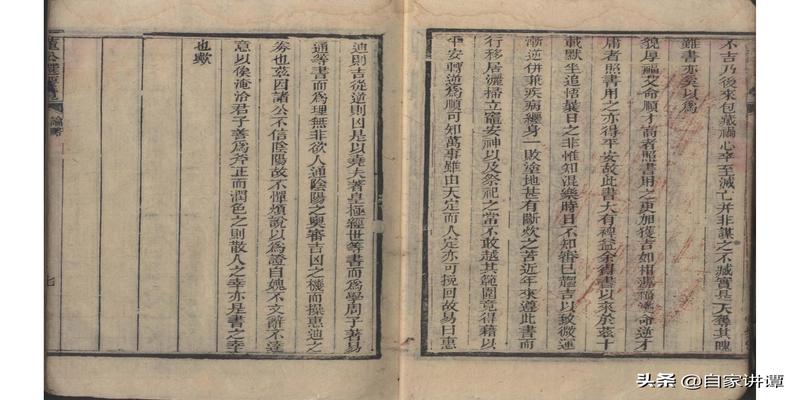 不吉乃後來包藏禍心幸至滅亡并非謀之不臧實是天奪其魄
難書亦奚以爲
貌厚福艾命順才高者照書用之更加獲吉如相薄福命逆才
庸者照書用之亦得平安故此書大有裨益余得書以來於茲十
載默坐追悟曩日之非惟知混樂時日不知審已趨吉以致微運
漸逆併兼疾病纏身一敗塗地甚有斷炊之苦近年來遵此書而
行移居灑掃立竈安神以及祭祀之當不敢越其範圍竟得藉以
平安轉逆爲順可知萬事雖由天定而人定亦可挽回故易曰惠
迪則吉從逆則凶是以堯夫著皇極經世等書而爲學周子著易
通等書而爲理無非欲人通陰陽之奧審吉凶之機而操惠迪之
劵也茲因諸公不信陰陽故不憚煩說以爲證自媿不文辭不達
意以俟淹洽君子善爲斧正而潤色之則散人之幸亦是書之幸
也歟
論畧
七
头条 @自家讲谭